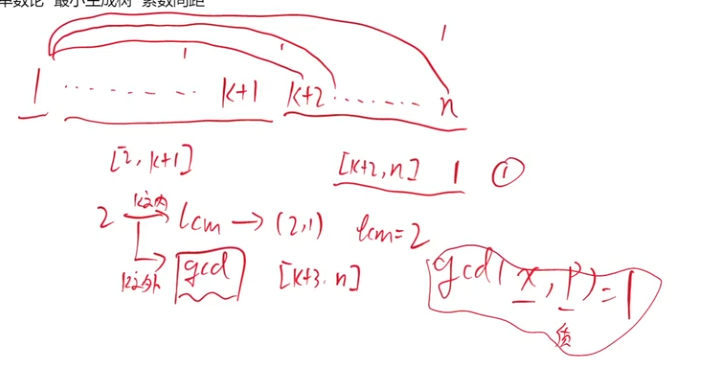 单数论 最小生成树 素数间距
1 1 1
1 ......... k+1 k+2 ...... n
[2, k+1] [k+2, n] 1 ①
2 k之内 lcm → (2,1) lcm=2
k之外 gcd [k+3, n] gcd(x, p)=1
质